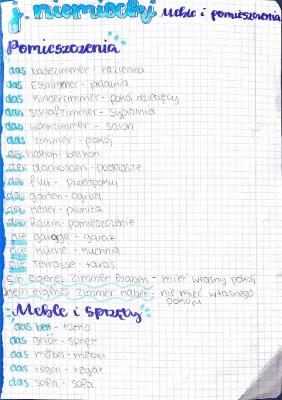 j. niemiecki Meble i pomieszczenia
Pomieszczenia
das badezimmer - łazienka
das Esszimmer - jadalnia
das Kinderzimmer - pokój dziecięcy
das schlafzimmer - sypialnia
das wohnzimmer - salon
das zimmer - pokój
der balkon - balkon
der dachboden - poddasze
der flur - przedpokój
der garten - ogród
der keller - piwnica
der Raum - pomieszczenie
die garage - garaż
die küche - kuchnia
die Terrasse - taras
Ein eigenes zimmer haben - mieć własny pokój
kein eigenes zimmer haben - nie mieć własnego
pokoju
Meble i sprzęty
das bett - łóżko
das - sprzęt
das möbel - mebel
das regal - regał
das sofa - sofa